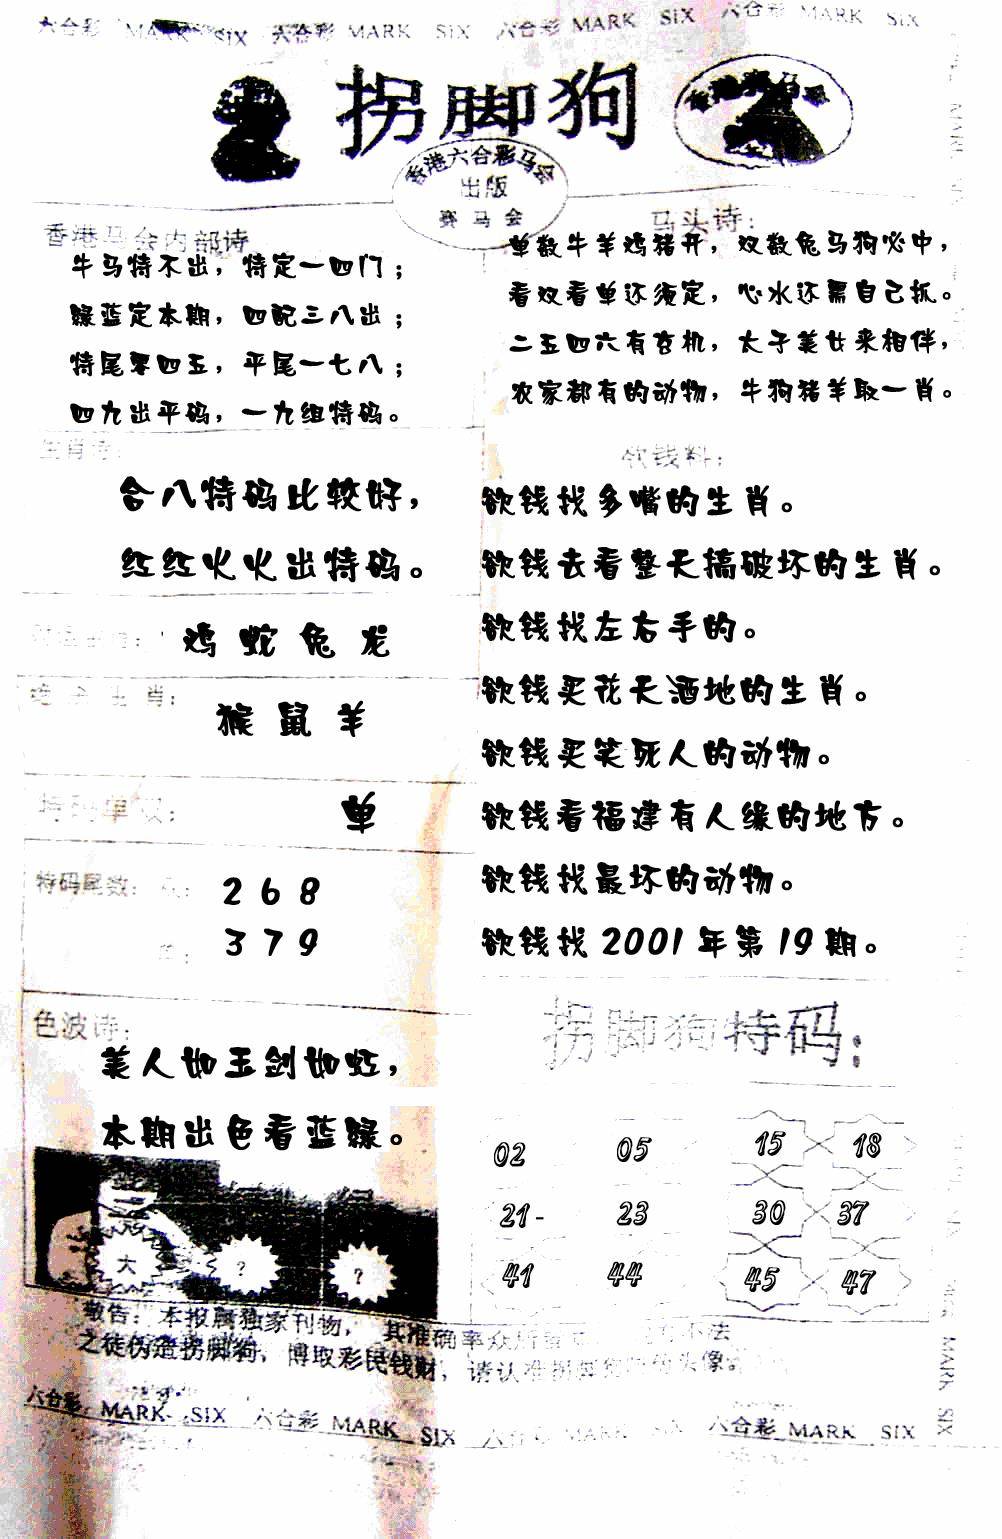 六合彩 MARK SIX 六合彩 MARK SIX 六合彩 MARK SIX 六合彩 MARK SIX
拐脚狗
香港六合彩马会
出版
赛马会
香港马会内部诗
牛马特不出，特定一四门；
绿蓝定本期，四配三八出；
特尾零四五，平尾一七八；
四九出平码，一九组特码。
马头诗：
单数牛羊鸡猪开，双数兔马狗必中，
看双看单还须定，心水还需自己抓。
二五四六有玄机，太子美女来相伴，
农家都有的动物，牛狗猪羊取一肖。
生肖诗：
合八特码比较好，
红红火火出特码。
鸡 蛇 兔 龙
生肖：
猴 鼠 羊
特码单双：
单
特码尾数：
2 6 8
3 7 9
色波诗：
美人如玉剑如虹，
本期出色看蓝绿。
大 ? ?
欲钱料：
欲钱找多嘴的生肖。
欲钱去看整天搞破坏的生肖。
欲钱找左右手的。
欲钱买花天酒地的生肖。
欲钱买笑死人的动物。
欲钱看福建有人缘的地方。
欲钱找最坏的动物。
欲钱找 2001 年第 19 期。
拐脚狗特码：
02 05 15 18
21- 23 30 37
41 44 45 47
敬告：本报属独家刊物，其准确率众所 不法
之徒伪造拐脚狗，博取彩民钱财，请认准拐脚 头像。
六合彩 MARK SIX 六合彩 MARK SIX 六合彩 MARK SIX 六合彩 MARK SIX
MARK SIX